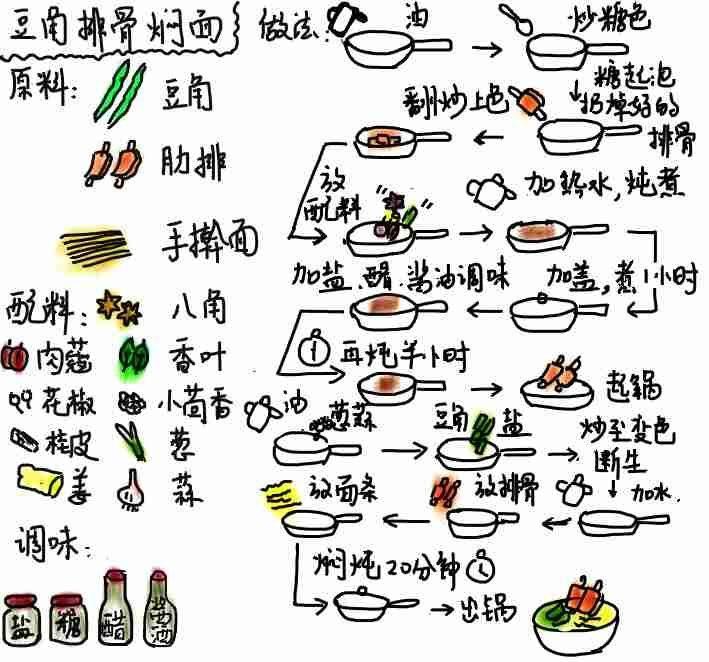 豆角排骨焖面
原料:
豆角
肋排
手擀面
配料:
八角
肉蔻
香叶
花椒
小茴香
桂皮
葱
姜
蒜
调味:
盐
糖
醋
酱油
做法:
油
炒糖色
糖起泡
扔掉绰的
排骨
翻炒上色
放
配料
加热水,炖煮
加盖,煮1小时
加盐、醋、酱油调味
再炖半小时
起锅
油
葱蒜
豆角
盐
炒至变色
断生
加水.
放排骨
放面条
焖炖20分钟
出锅